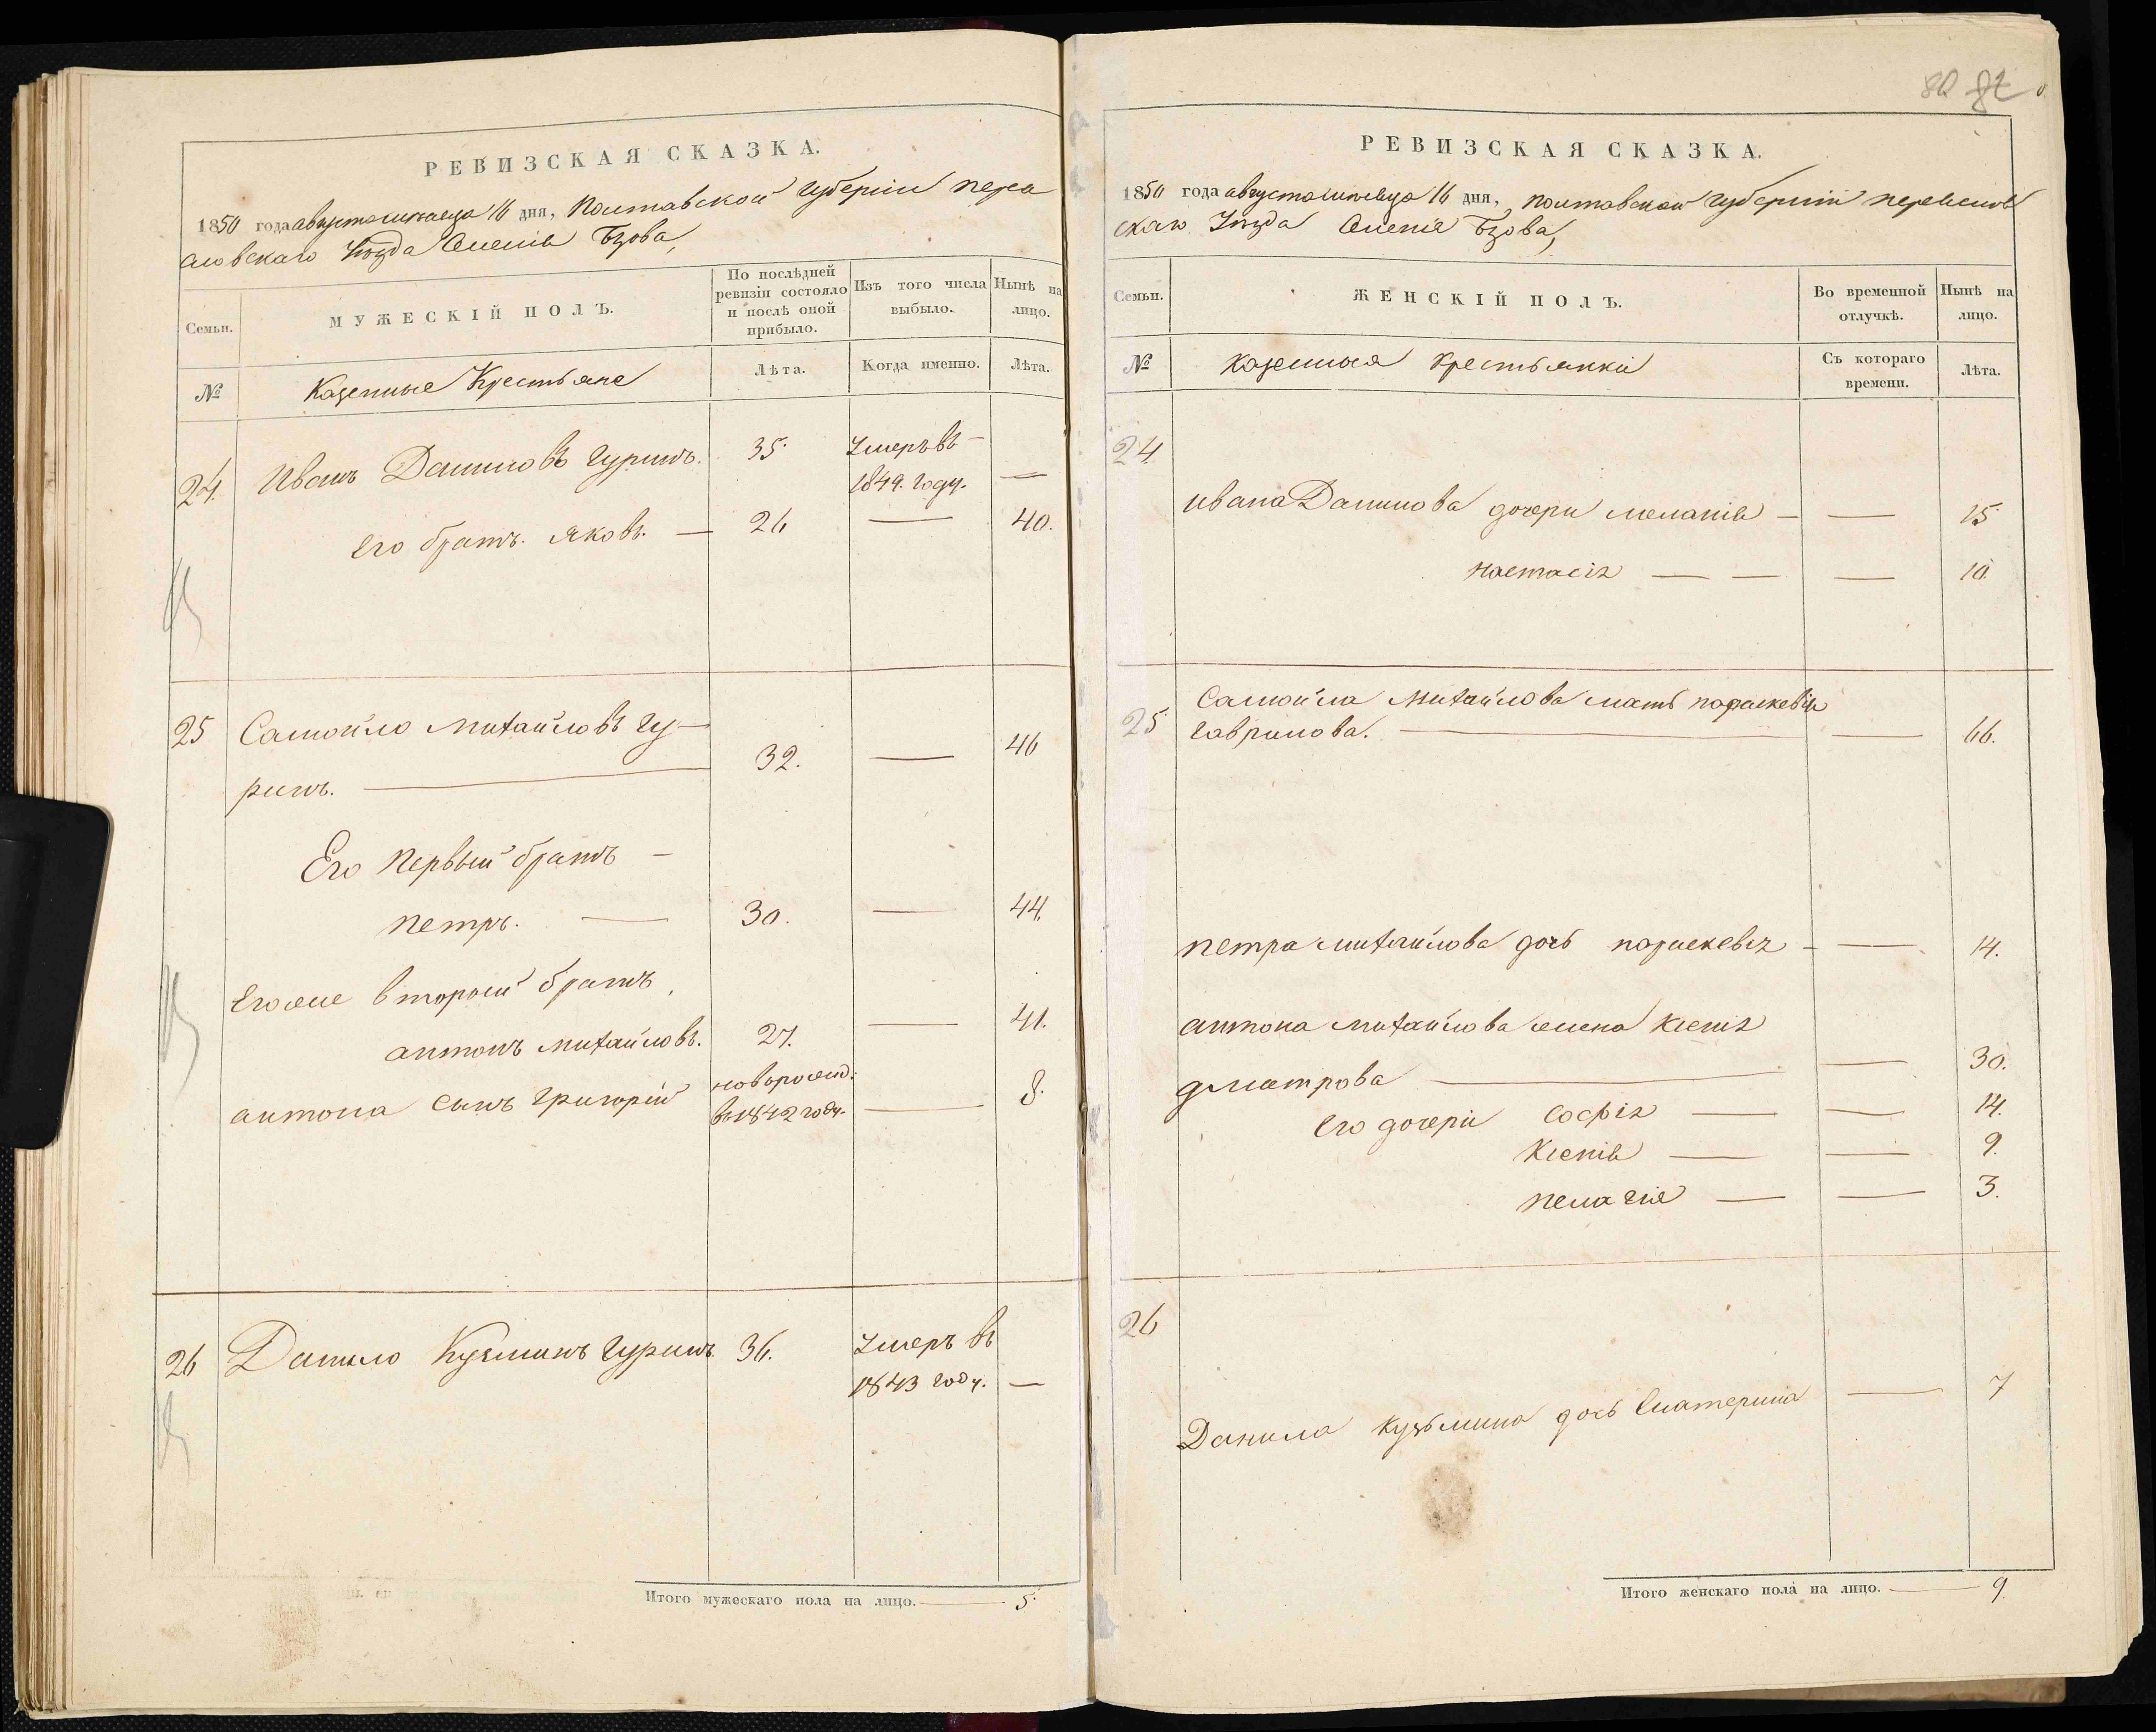 РЕВИЗСКАЯ СКАЗКА.
1850 года августа месяца 16 дня, Полтавской Губерніи Перея
словскаго Уезда Селенія Бзова,
Семьи.
МУЖЕСКІЙ ПОЛЪ.
По послѣдней ревизіи состояло и послѣ оной прибыло.
Изъ того числа выбыло.
Нынѣ на лицо.
№
Казенные Крестьяне
Лѣта.
Когда именно.
Лѣта.
24. Иванъ Даниловъ Гуринъ. 35. Умеръ въ
1849. году. —
его братъ. Яковъ. — 26 — 40.
25 Самойло Михайловъ Гу-
ринъ. — 32. — 46
Его Первый братъ —
Петръ. — 30. — 44.
Егоже второй братъ,
Антонъ Михайловъ. 27. — 41.
Антона сынъ Григорій новорожд:
въ 1842 году. — 8.
26 Данило Кузминъ Гуринъ. 36. Умеръ въ
1843 году. —
Итого мужескаго пола на лицо. — 5.
80
РЕВИЗСКАЯ СКАЗКА.
1850 года августа месяца 16 дня, Полтавской Губерніи Переяслов
скаго Уезда Селенія Бзова,
Семьи.
ЖЕНСКІЙ ПОЛЪ.
Во временной отлучкѣ.
Нынѣ на лицо.
№
Казенныя Крестьянки
Съ котораго времени.
Лѣта.
24
Ивана Данилова дочери Меланія — — 15
Настасія — — — 10.
25. Самойла Михайлова мать Параскевія
Гаврилова. — — 66.
Петра Михайлова дочь Параскевія — — 14.
Антона Михайлова жена Ксенія
Дматрова — — 30.
Его дочери Софія — — 14.
Ксенія — — 9.
Пелагія — — 3.
26
Данила Кузьмина дочь Екатерина — 7
Итого женскаго пола на лицо. — 9.